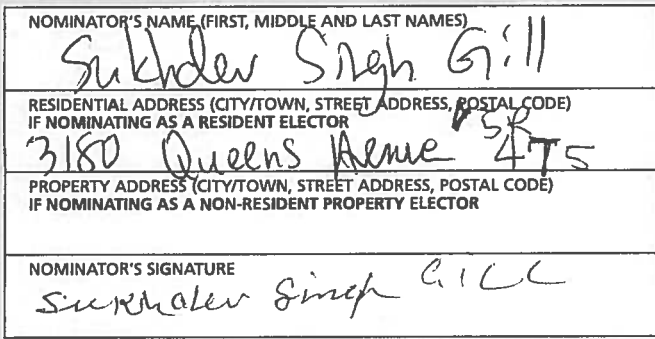 NOMINATOR'S NAME (FIRST, MIDDLE AND LAST NAMES)
Sukhdev Singh Gill
RESIDENTIAL ADDRESS (CITY/TOWN, STREET ADDRESS, POSTAL CODE)
IF NOMINATING AS A RESIDENT ELECTOR
3180 Queens Avenue V5R 4T5
PROPERTY ADDRESS (CITY/TOWN, STREET ADDRESS, POSTAL CODE)
IF NOMINATING AS A NON-RESIDENT PROPERTY ELECTOR
NOMINATOR'S SIGNATURE
Sukhdev Singh GILL